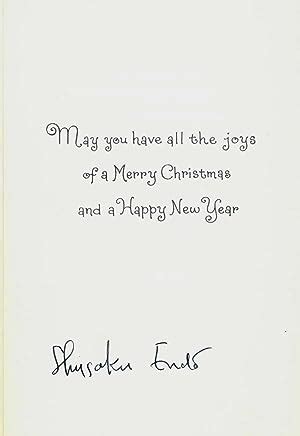 May you have all the joys
of a Merry Christmas
and a Happy New Year
Shusaku Endo